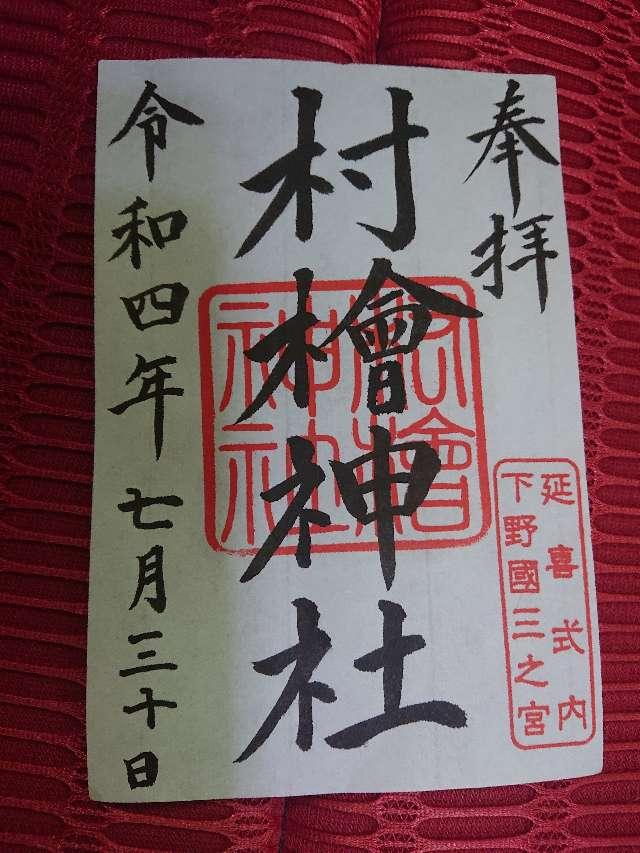 奉拝
延喜式内
下野國三之宮
村檜神社
村檜神社
令和四年七月三十日